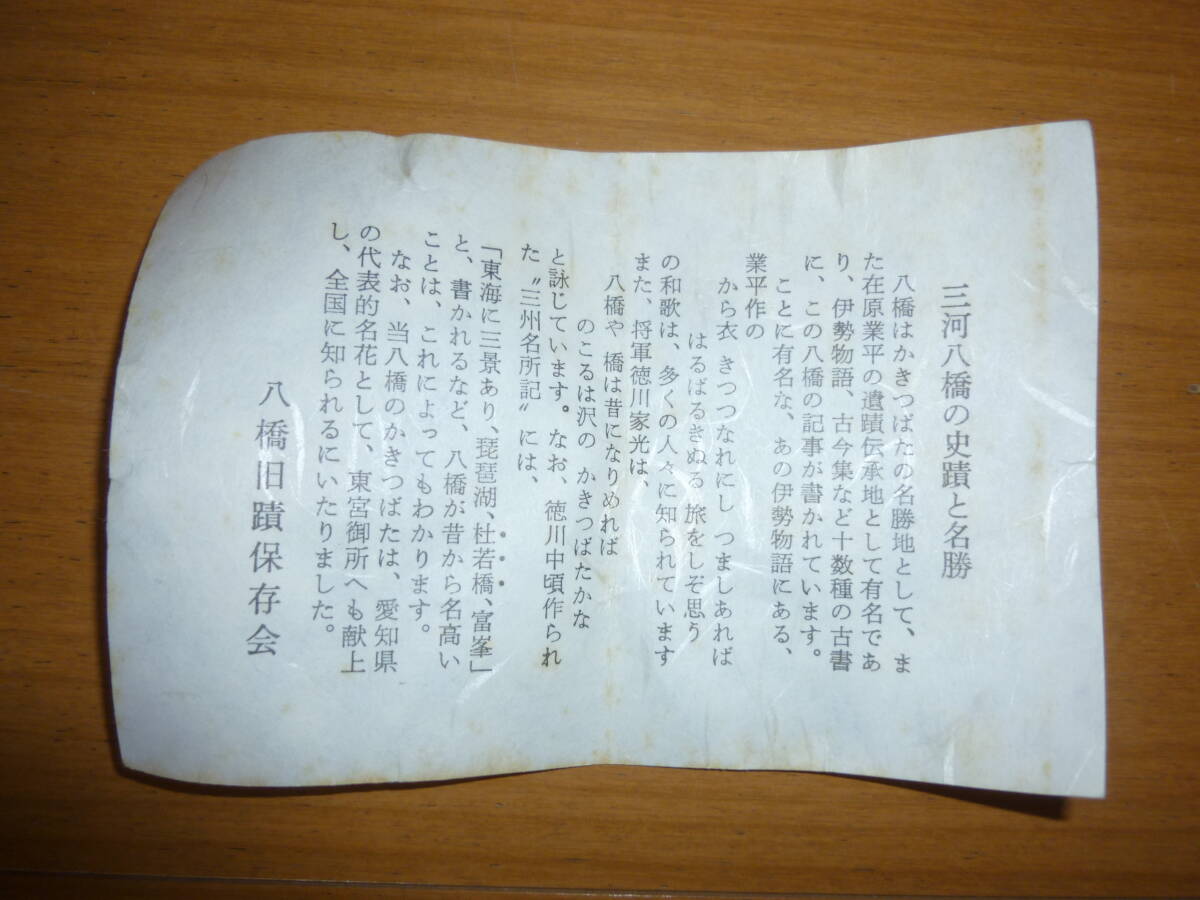 三河八橋の史蹟と名勝
八橋はかきつばたの名勝地として、ま
た在原業平の遺蹟伝承地として有名であ
り、伊勢物語、古今集など十数種の古書
に、この八橋の記事が書かれています。
ことに有名な、あの伊勢物語にある、
業平作の
から衣 きつつなれにし つましあれば
はるばるきぬる 旅をしぞ思う
の和歌は、多くの人々に知られています
また、将軍徳川家光は、
八橋や 橋は昔になりめれば
のこるは沢の かきつばたかな
と詠じています。なお、徳川中頃作られ
た〝三州名所記〟には、
「東海に三景あり、琵琶湖、杜若橋、富峯」
と、書かれるなど、八橋が昔から名高い
ことは、これによってもわかります。
なお、当八橋のかきつばたは、愛知県
の代表的名花として、東宮御所へも献上
し、全国に知られるにいたりました。
八橋旧蹟保存会